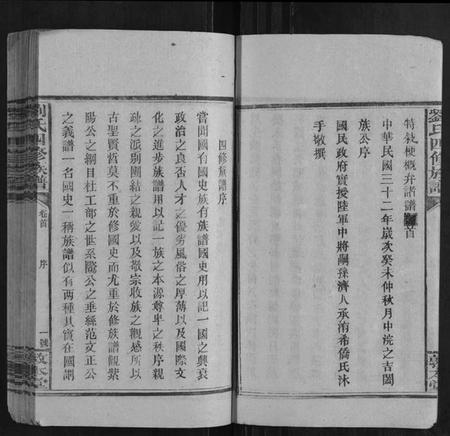 劉氏四修族譜
特敍梗概弁諸譜首
中華民國三十二年歲次癸未仲秋月中浣之吉闔
族公序
國民政府實授陸軍中將嗣孫濟人承洧希僑氏沐
手敬撰
四修族譜序
嘗聞國有國史族有族譜國史用以記一國之興衰
政治之良否人才之優劣風俗之厚薄以及國際文
化之進步族譜用以記一族之本源尊卑之秩序親
疎之派別團結之親愛以及敬宗收族之觀感所以
古聖賢哲莫不重於修國史而尤重於修族譜觀紫
陽公之綱目杜工部之世系歐公之垂絲范文正公
之義譜一名國史一稱族譜似有兩種其實在國謂
劉氏四修族譜
卷首
序
一號
敦本堂